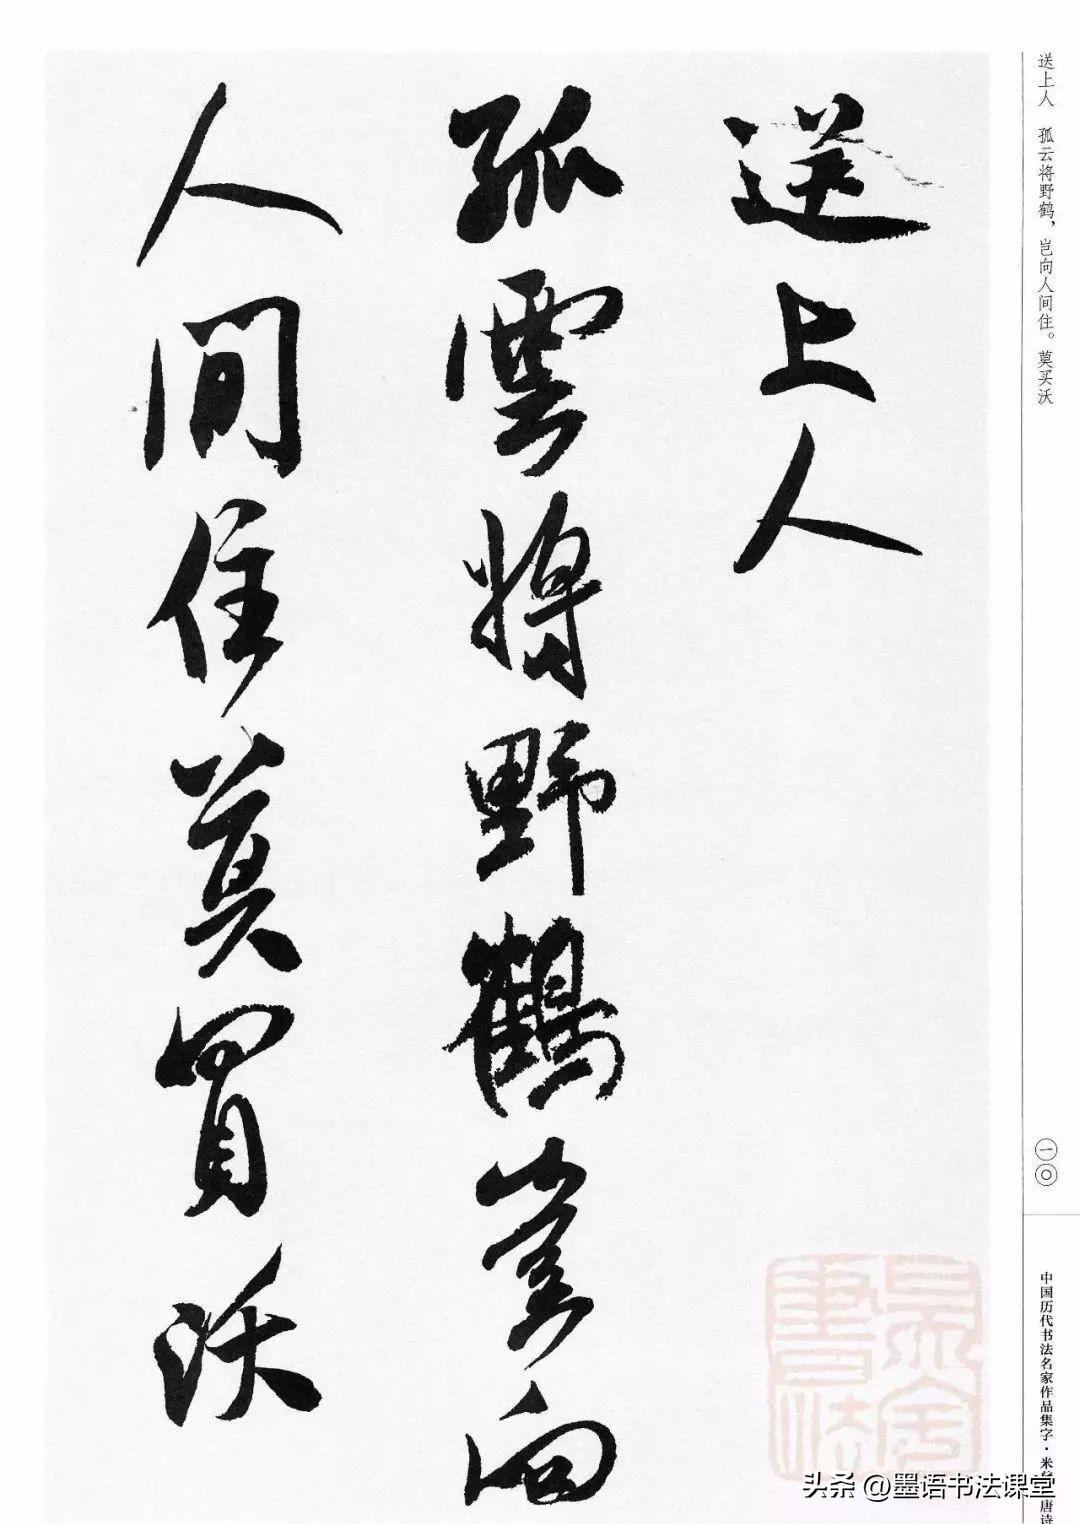 送上人
孤雲將野鶴豈向
人間住莫買沃
送上人 孤云将野鹤，岂向人间住。莫买沃
一〇
中国历代书法名家作品集字·米
唐诗
头条 @墨语书法课堂